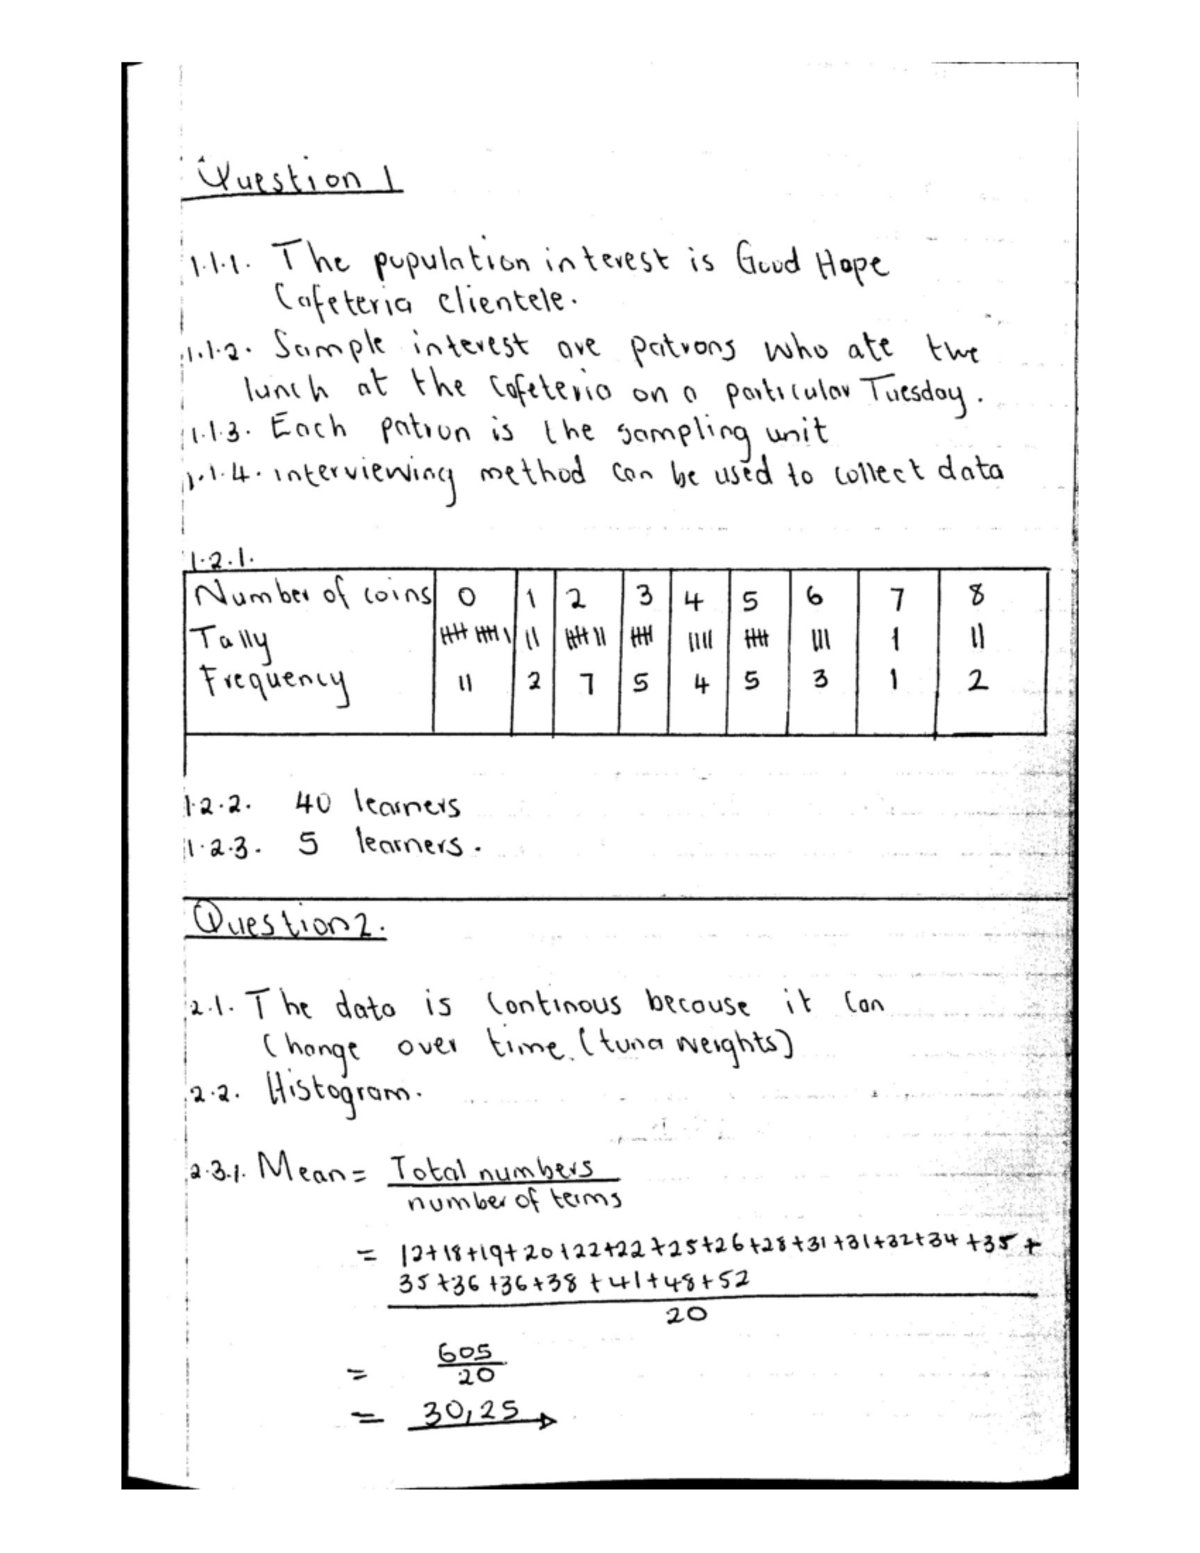 Question 1
1.1.1. The population interest is Good Hope
Cafeteria clientele.
1.1.2. Sample interest are patrons who ate the
lunch at the cafeteria on a particular Tuesday.
1.1.3. Each patron is the sampling unit
1.1.4. interviewing method can be used to collect data
1.2.1.
Number of coins 0 1 2 3 4 5 6 7 8
Tally 𝍸 𝍸 | || 𝍸 || 𝍸 |||| 𝍸 ||| | ||
Frequency 11 2 7 5 4 5 3 1 2
1.2.2. 40 learners
1.2.3. 5 learners.
Question 2.
2.1. The data is continous because it can
change over time. (tuna weights)
2.2. Histogram.
2.3.1. Mean = Total numbers
number of terms
= 12+18+19+20+22+22+25+26+28+31+31+32+34+35+
35+36+36+38+41+48+52
20
= 605
20
= 30,25